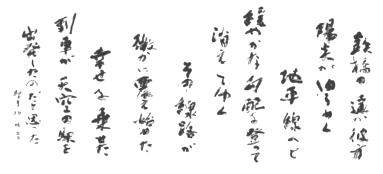 鉄橋の遠い彼方
陽炎がゆらめく
地平線へと
緩やかな勾配を登って
消えてゆく
その線路が
微かに震え始めた
幸せを乗せた
列車が天空の駅を
出発したのだと思った